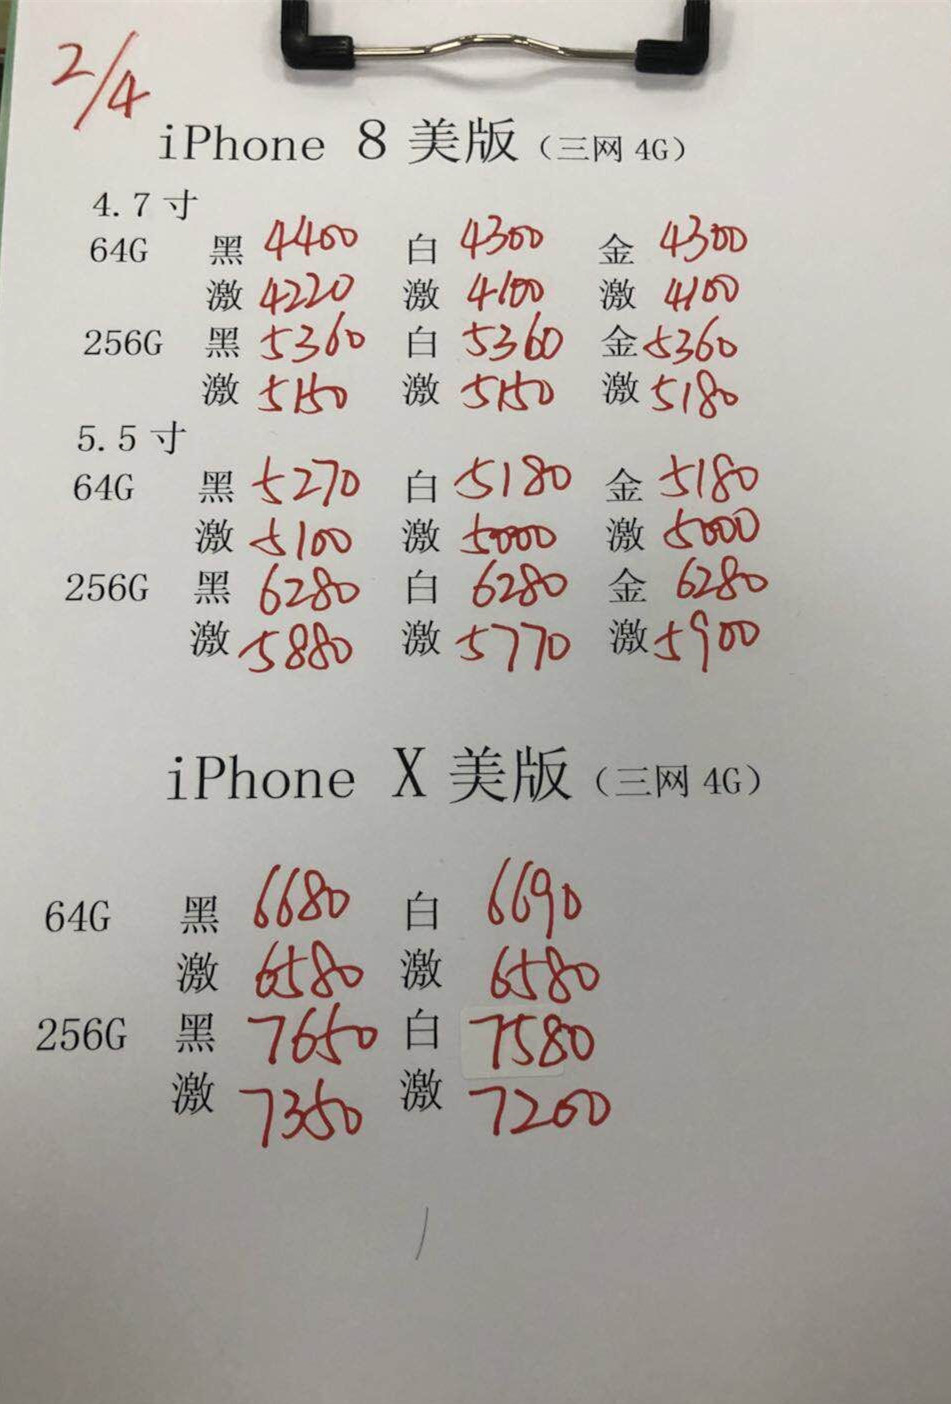 2/4
iPhone 8 美版（三网 4G）
4.7 寸
64G 黑 4400 白 4300 金 4300
激 4220 激 4100 激 4100
256G 黑 5360 白 5360 金 5360
激 5150 激 5150 激 5180
5.5 寸
64G 黑 5270 白 5180 金 5180
激 5100 激 5000 激 5000
256G 黑 6280 白 6280 金 6280
激 5880 激 5770 激 5900
iPhone X 美版（三网 4G）
64G 黑 6680 白 6690
激 6580 激 6580
256G 黑 7650 白 7580
激 7350 激 7200